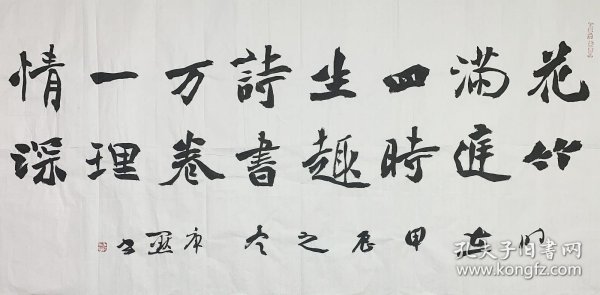 花竹
满庭
四時
生趣
詩書
万卷
一理
情深
时在甲辰之冬
书
孔夫子旧书网
www.kongfz.com